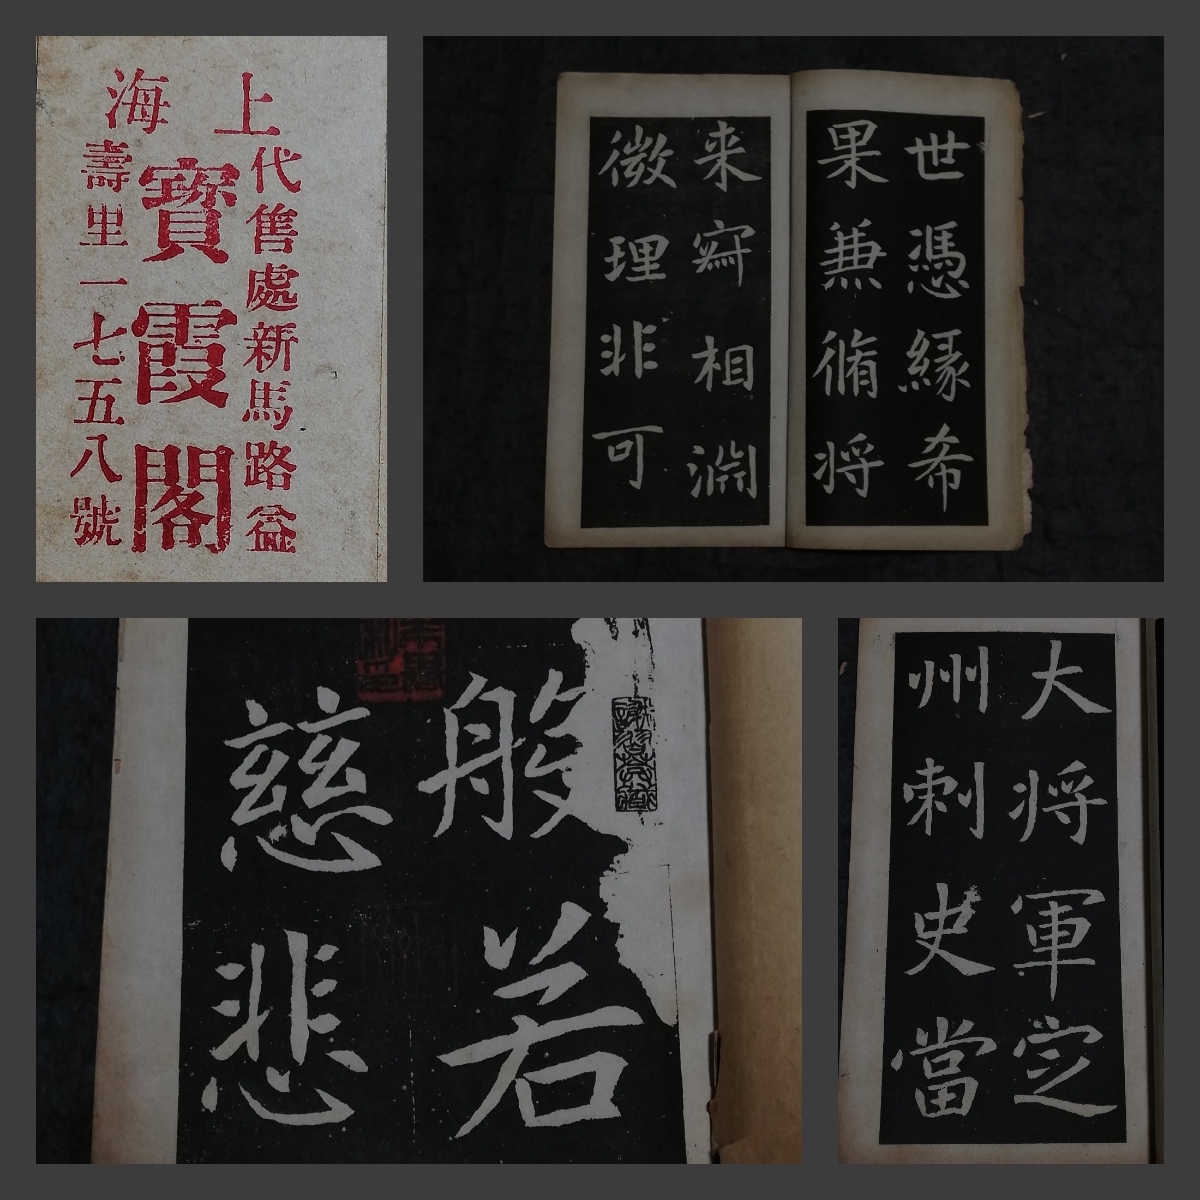 上海
代售處新馬路益
寶霞閣
壽里一七五八號
世憑緣希
果兼脩將
来寂相淵
微理非可
般若
慈悲
大将軍定
州刺史當